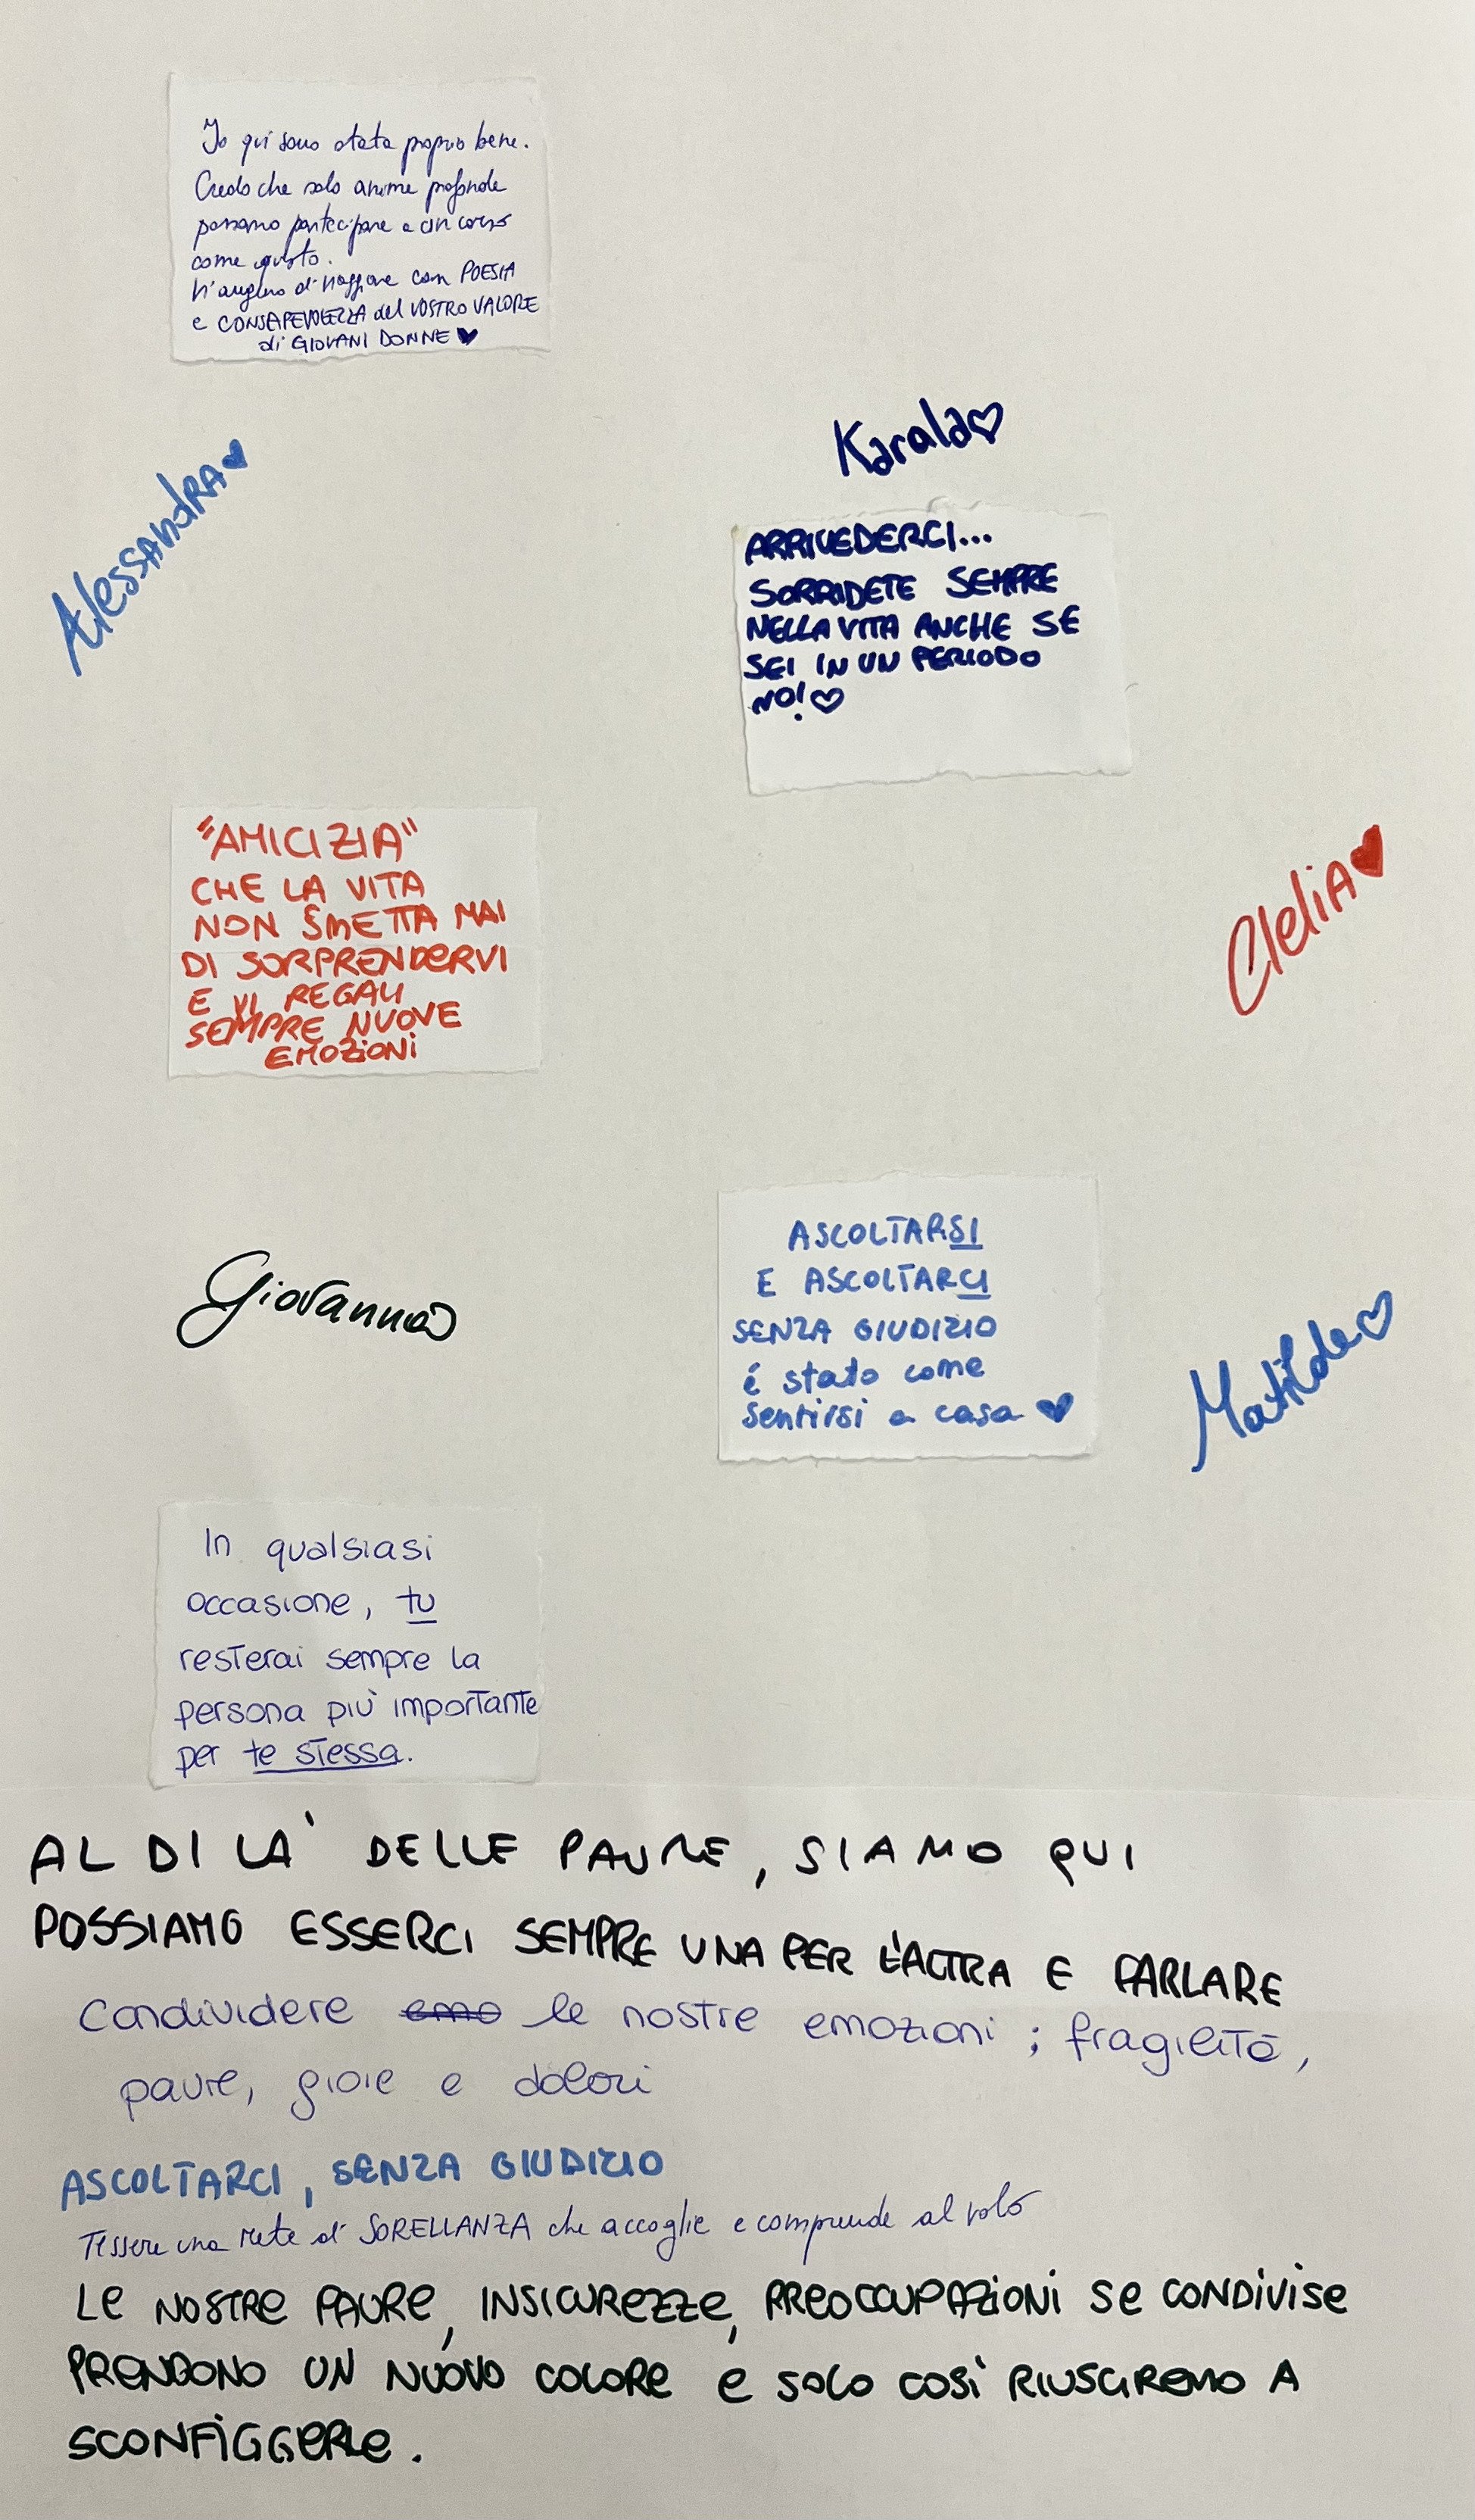 Io qui sono stata proprio bene.
Credo che solo anime profonde
possano partecipare a un corso
come questo.
V'auguro di viaggiare con POESIA
e CONSAPEVOLEZZA del VOSTRO VALORE
di GIOVANI DONNE
Karala
AlessANdRA
ARRIVEDERCI...
SORRIDETE SEMPRE
NELLA VITA ANCHE SE
SEI IN UN PERIODO
NO!
"AMICIZIA"
CHE LA VITA
NON SMETTA MAI
DI SORPRENDERVI
E VI REGALI
SEMPRE NUOVE
EMOZIONI
CleliA
Giovanna
ASCOLTARSI
E ASCOLTARCI
SENZA GIUDIZIO
é stato come
sentirsi a casa
Matilde
In qualsiasi
occasione, tu
resterai sempre la
persona più importante
per te stessa.
AL DI LA' DELLE PAURE, SIAMO QUI
POSSIAMO ESSERCI SEMPRE UNA PER L'ALTRA E PARLARE
Condividere emo le nostre emozioni ; fragilità,
paure, gioie e dolori
ASCOLTARCI, SENZA GIUDIZIO
Tessere una rete di SORELLANZA che accoglie e comprende al volo
Le NOSTRe PAURe, INSICUReZZe, PReOCCUPAZiONi Se CONDIVISe
PReNDONO UN NUOVO COLORe e SOLO COSÌ RIUSCIReMO A
SCONFiGGeRLe.